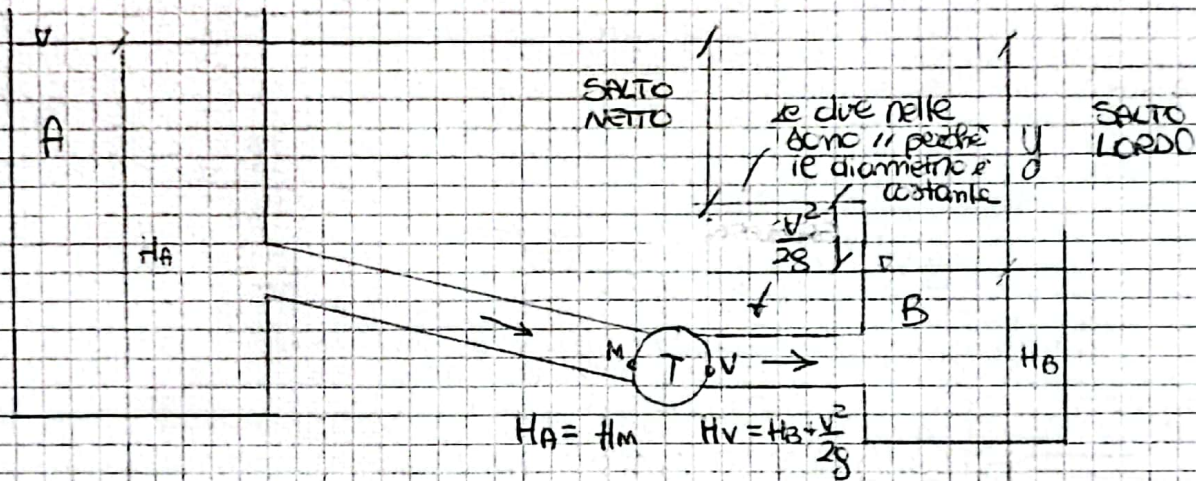 A
HA
SALTO
NETTO
le due nelle
sono // perchè
il diametro è
costante
V²/2g
Y₀
SALTO
LORDO
B
M
T
V
HB
HA = HM
HV = HB + V²/2g